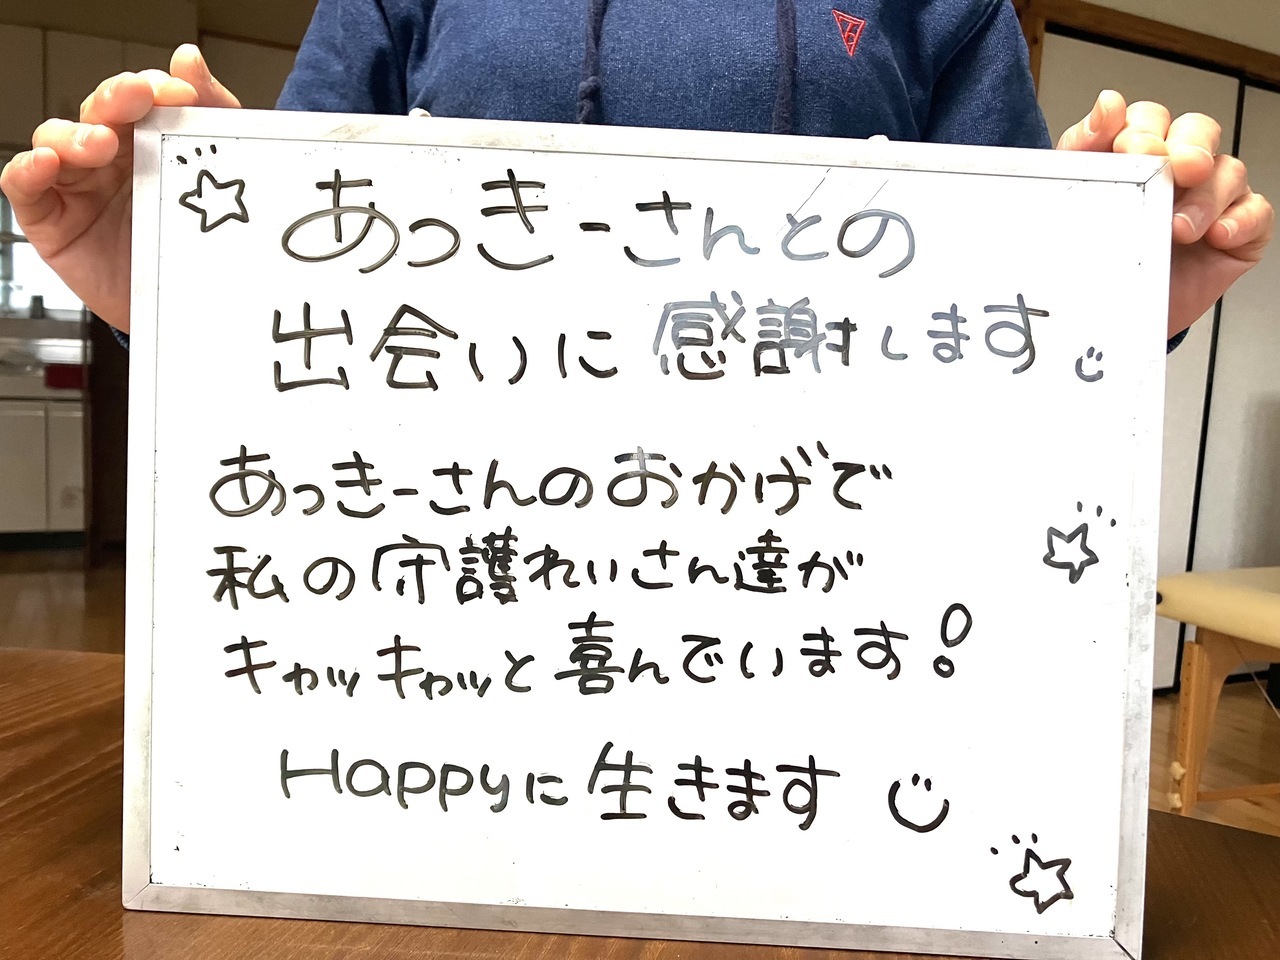 あっきーさんとの
出会いに感謝します
あっきーさんのおかげで
私の守護れいさん達が
キャッキャッと喜んでいます!
Happyに生きます